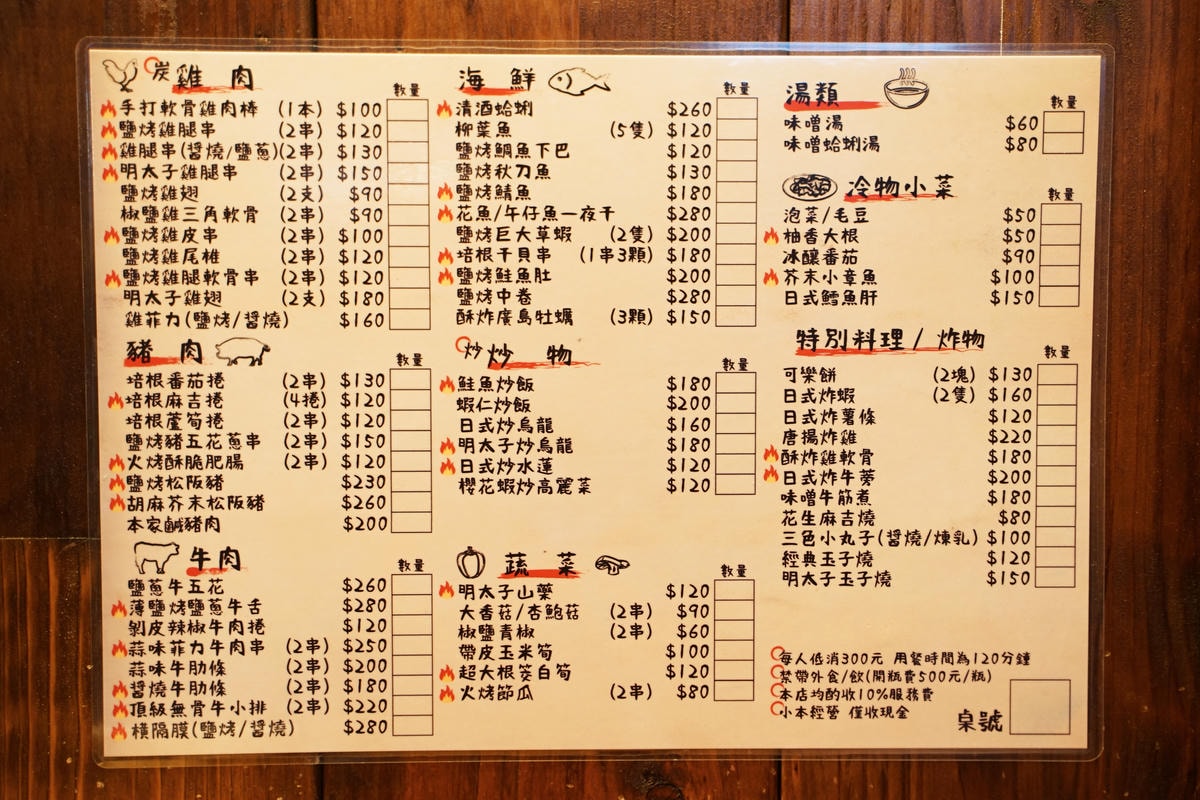 炭 雞肉
數量
手打軟骨雞肉棒 (1本) $100
鹽烤雞腿串 (2串) $120
雞腿串(醬燒/鹽蔥)(2串) $130
明太子雞腿串 (2串) $150
鹽烤雞翅 (2支) $90
椒鹽雞三角軟骨 (2串) $90
鹽烤雞皮串 (2串) $100
鹽烤雞尾椎 (2串) $120
鹽烤雞腿軟骨串 (2串) $120
明太子雞翅 (2支) $180
雞菲力(鹽烤/醬燒) $160
豬肉
數量
培根番茄捲 (2串) $130
培根麻吉捲 (4捲) $120
培根蘆筍捲 (2串) $120
鹽烤豬五花蔥串 (2串) $150
火烤酥脆肥腸 (2串) $120
鹽烤松阪豬 $230
胡麻芥末松阪豬 $260
本家鹹豬肉 $200
牛肉
數量
鹽蔥牛五花 $260
薄鹽烤鹽蔥牛舌 $280
剝皮辣椒牛肉捲 $120
蒜味菲力牛肉串 (2串) $250
蒜味牛肋條 (2串) $200
醬燒牛肋條 (2串) $180
頂級無骨牛小排 (2串) $220
橫隔膜(鹽烤/醬燒) $280
海鮮
數量
清酒蛤蜊 $260
柳葉魚 (5隻) $120
鹽烤鯛魚下巴 $120
鹽烤秋刀魚 $130
鹽烤鯖魚 $180
花魚/午仔魚一夜干 $280
鹽烤巨大草蝦 (2隻) $200
培根干貝串 (1串3顆) $180
鹽烤鮭魚肚 $200
鹽烤中卷 $280
酥炸廣島牡蠣 (3顆) $150
炒 炒物
數量
鮭魚炒飯 $180
蝦仁炒飯 $200
日式炒烏龍 $160
明太子炒烏龍 $180
日式炒水蓮 $120
櫻花蝦炒高麗菜 $120
蔬菜
數量
明太子山藥 $120
大香菇/杏鮑菇 (2串) $90
椒鹽青椒 (2串) $60
帶皮玉米筍 $100
超大根茭白筍 $120
火烤節瓜 (2串) $80
湯類
數量
味噌湯 $60
味噌蛤蜊湯 $80
冷物小菜
數量
泡菜/毛豆 $50
柚香大根 $50
冰釀番茄 $90
芥末小章魚 $100
日式鱈魚肝 $150
特別料理/炸物
數量
可樂餅 (2塊) $130
日式炸蝦 (2隻) $160
日式炸薯條 $120
唐揚炸雞 $220
酥炸雞軟骨 $180
日式炸牛蒡 $200
味噌牛筋煮 $180
花生麻吉燒 $80
三色小丸子(醬燒/煉乳) $100
經典玉子燒 $120
明太子玉子燒 $150
每人低消300元 用餐時間為120分鐘
禁帶外食/飲(開瓶費500元/瓶)
本店均酌收10%服務費
小本經營 僅收現金
桌號